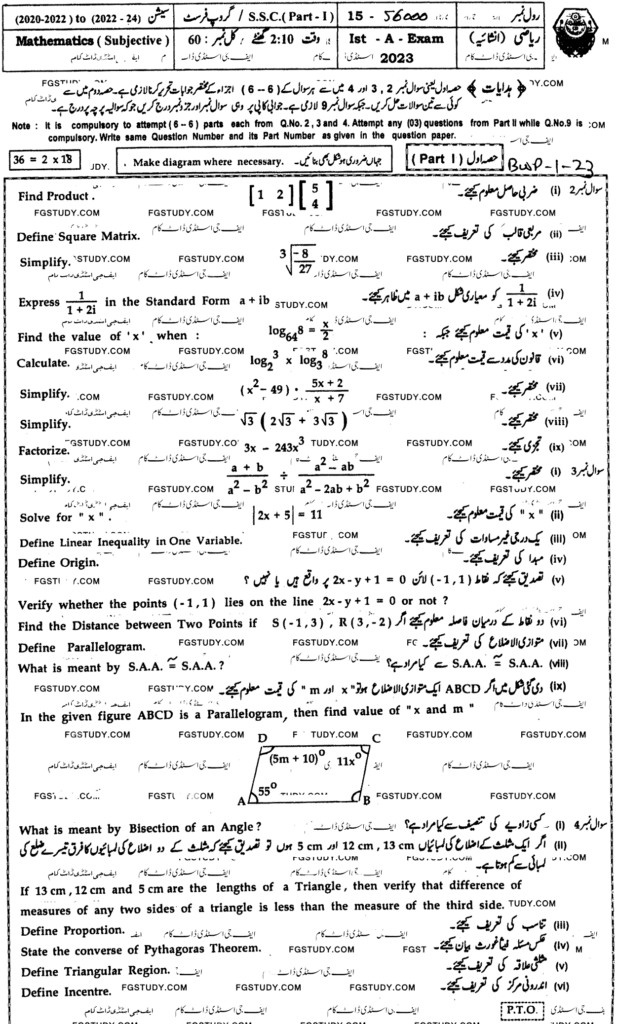 (2020-2022) to (2022 - 24) سیشن S.S.C.(Part - I) / گروپ فرسٹ 15 - 56000 رول نمبر
Mathematics ( Subjective ) کل نمبر : 60 وقت 2:10 گھنٹے Ist - A - Exam 2023 ریاضی (انشائیہ)
﴿ ہدایات ﴾ حصہ اول یعنی سوال نمبر 2 , 3 اور 4 میں سے ہر سوال کے (6 – 6) اجزاء کے مختصر جوابات تحریر کرنا لازمی ہے۔ حصہ دوم میں سے
کوئی سے تین سوالات حل کریں۔ جبکہ سوال نمبر 9 لازمی ہے۔ جوابی کاپی پر وہی سوال نمبر اور جزو نمبر درج کریں جو کہ سوالیہ پرچہ پر درج ہے۔
Note : It is compulsory to attempt (6 – 6) parts each from Q.No. 2 , 3 and 4. Attempt any (03) questions from Part II while Q.No.9 is
compulsory. Write same Question Number and its Part Number as given in the question paper.
36 = 2 x 18 Make diagram where necessary. جہاں ضروری ہو شکل بھی بنائیں۔ ( Part I ) حصہ اول BWP-1-23
Find Product . [1 2] [5 4] سوال نمبر 2 (i) ضربی حاصل معلوم کیجئے۔
FGSTUDY.COM FGSTUDY.COM FGSTUDY.COM FGSTUDY.COM
Define Square Matrix. (ii) مربعی قالب کی تعریف کیجئے۔
Simplify. 3√(-8/27) (iii) مختصر کیجئے۔
Express 1/(1 + 2i) in the Standard Form a + ib (iv) 1/(1 + 2i) کو معیاری شکل a + ib میں ظاہر کیجئے۔
Find the value of 'x' , when : log₆₄8 = x/2 (v) 'x' کی قیمت معلوم کیجئے جبکہ :
FGSTUDY.COM FGSTUDY.COM
Calculate. log₂3 x log₃8 (vi) قانون کی مدد سے قیمت معلوم کیجئے۔
Simplify. (x² – 49) · (5x + 2)/(x + 7) (vii) مختصر کیجئے۔
Simplify. √3 ( 2√3 + 3√3 ) (viii) مختصر کیجئے۔
Factorize. 3x – 243x³ (ix) تجزی کیجئے۔
Simplify. (a + b)/(a² – b²) ÷ (a² – ab)/(a² – 2ab + b²) سوال نمبر 3 (i) مختصر کیجئے۔
Solve for " x " . |2x + 5| = 11 (ii) " x " کی قیمت معلوم کیجئے۔
Define Linear Inequality in One Variable. (iii) یک درجی غیر مساوات کی تعریف کیجئے۔
Define Origin. (iv) مبدا کی تعریف کیجئے۔
(v) تصدیق کیجئے کہ نقاط (-1 , 1) لائن 2x - y + 1 = 0 پر واقع ہیں یا نہیں ؟
Verify whether the points (-1 , 1) lies on the line 2x - y + 1 = 0 or not ?
Find the Distance between Two Points if S ( -1 , 3) , R ( 3 , -2 ) (vi) دو نقاط کے درمیان فاصلہ معلوم کیجئے اگر
Define Parallelogram. FGSTUDY.COM FGSTUDY.COM (vii) متوازی الاضلاع کی تعریف کیجئے۔
What is meant by S.A.A. ≅ S.A.A. ? (viii) S.A.A. ≅ S.A.A. سے کیا مراد ہے؟
(ix) دی گئی شکل میں اگر ABCD ایک متوازی الاضلاع ہو تو " x اور m " کی قیمت معلوم کیجئے۔
In the given figure ABCD is a Parallelogram, then find value of "x and m "
FGSTUDY.COM FGSTUDY.COM FGSTUDY.COM
D C
(5m + 10)° 11x°
55°
A B
FGSTUDY.COM FGSTUDY.COM
What is meant by Bisection of an Angle ? سوال نمبر 4 (i) کسی زاویے کی تنصیف سے کیا مراد ہے؟
(ii) اگر ایک مثلث کے اضلاع کی لمبائیاں 13 cm , 12 cm اور 5 cm ہوں تو تصدیق کیجئے کہ مثلث کے دو اضلاع کی لمبائیوں کا فرق تیسرے ضلع کی
لمبائی سے کم ہوتا ہے۔
If 13 cm , 12 cm and 5 cm are the lengths of a Triangle, then verify that difference of
measures of any two sides of a triangle is less than the measure of the third side.
Define Proportion. (iii) تناسب کی تعریف کیجئے۔
State the converse of Pythagoras Theorem. FGSTUDY.COM (iv) عکس مسئلہ فیثاغورث بیان کیجئے۔
Define Triangular Region. (v) مثلثی علاقہ کی تعریف کیجئے۔
Define Incentre. FGSTUDY.COM FGSTUDY.COM (vi) اندرونی مرکز کی تعریف کیجئے۔
P.T.O.
FGSTUDY.COM FGSTUDY.COM FGSTUDY.COM